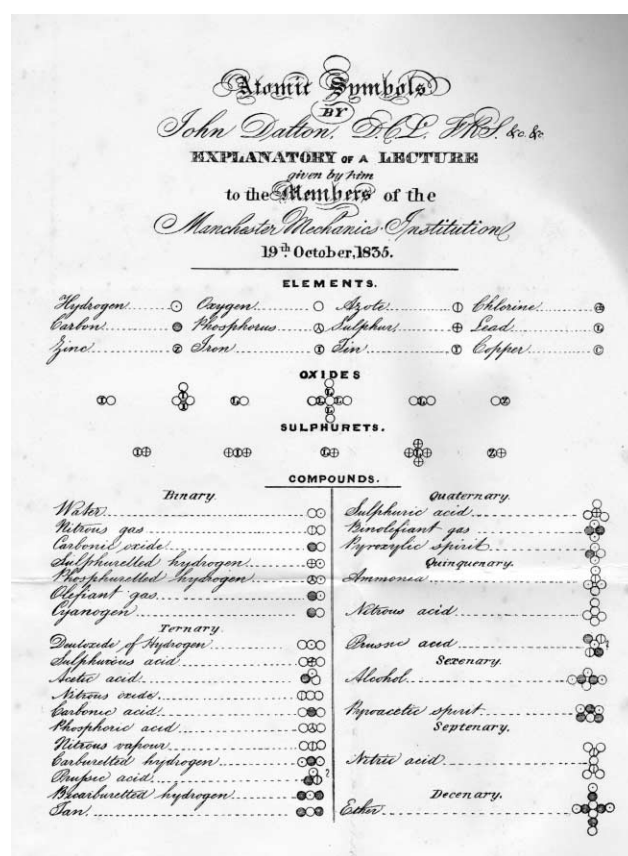 Atomic Symbols
BY
John Dalton, D.C.L. F.R.S. &c. &c.
EXPLANATORY OF A LECTURE
given by him
to the Members of the
Manchester Mechanics' Institution
19th October, 1835.
ELEMENTS.
Hydrogen Oxygen Azote Chlorine
Carbon Phosphorus Sulphur Lead L
Zinc Z Iron I Tin T Copper C
OXIDES
SULPHURETS.
COMPOUNDS.
Binary.
Water
Nitrous gas
Carbonic oxide
Sulphuretted hydrogen
Phosphuretted hydrogen
Olefiant gas
Cyanogen
Ternary.
Deutoxide of Hydrogen
Sulphurous acid
Acetic acid
Nitrous oxide
Carbonic acid
Phosphoric acid
Nitrous vapour
Carburetted hydrogen
Prussic acid ?
Bicarburetted hydrogen
Tan
Quaternary.
Sulphuric acid
Binolefiant gas
Pyroxylic spirit
Quinquenary.
Ammonia
Nitrous acid
Prussic acid ?
Sexenary.
Alcohol
Pyroacetic spirit
Septenary.
Nitric acid
Decenary.
Ether